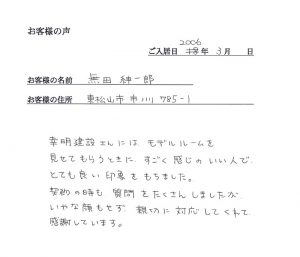 お客様の声
2006
ご入居日 年 3月 日
お客様の名前 無田 紳一郎
お客様の住所 東松山市市ノ川 785-1
幸明建設さんには モデルルームを
見せてもらうときに すごく感じの いい人で
とても良い 印象を もちました。
契約の時も 質問をたくさん しましたが
いやな顔もせず 親切に対応してくれて
感謝しています。